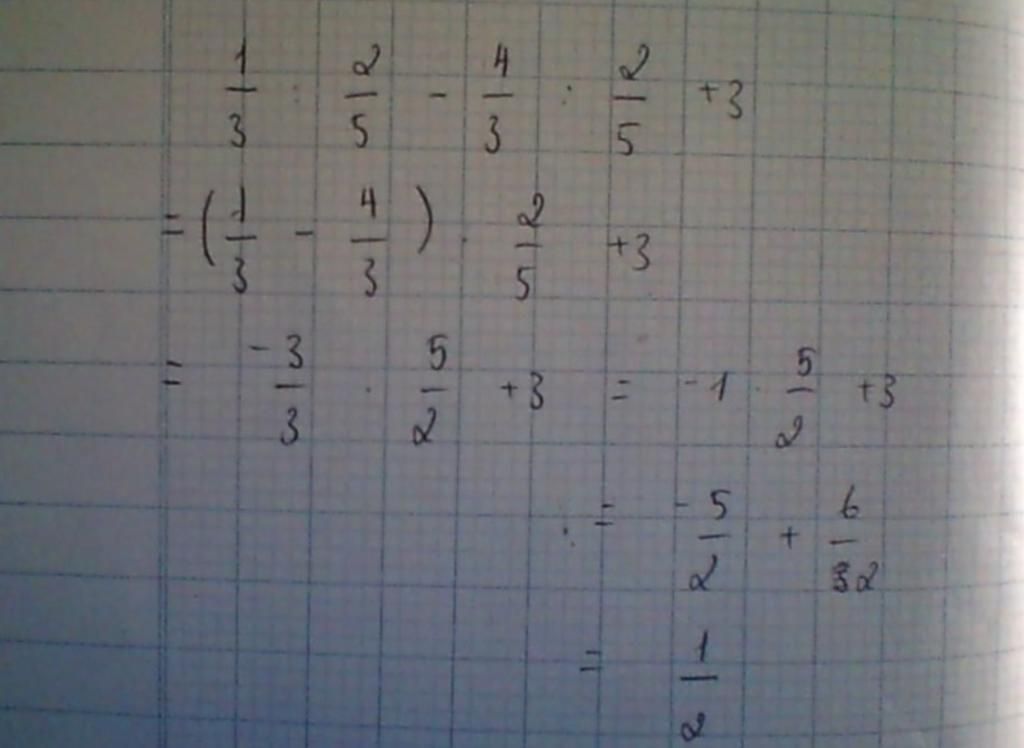 1/3 : 2/5 - 4/3 : 2/5 +3
= (1/3 - 4/3) . 2/5 +3
= -3/3 . 5/2 +3 = -1 . 5/2 +3
= -5/2 + 6/2
= 1/2